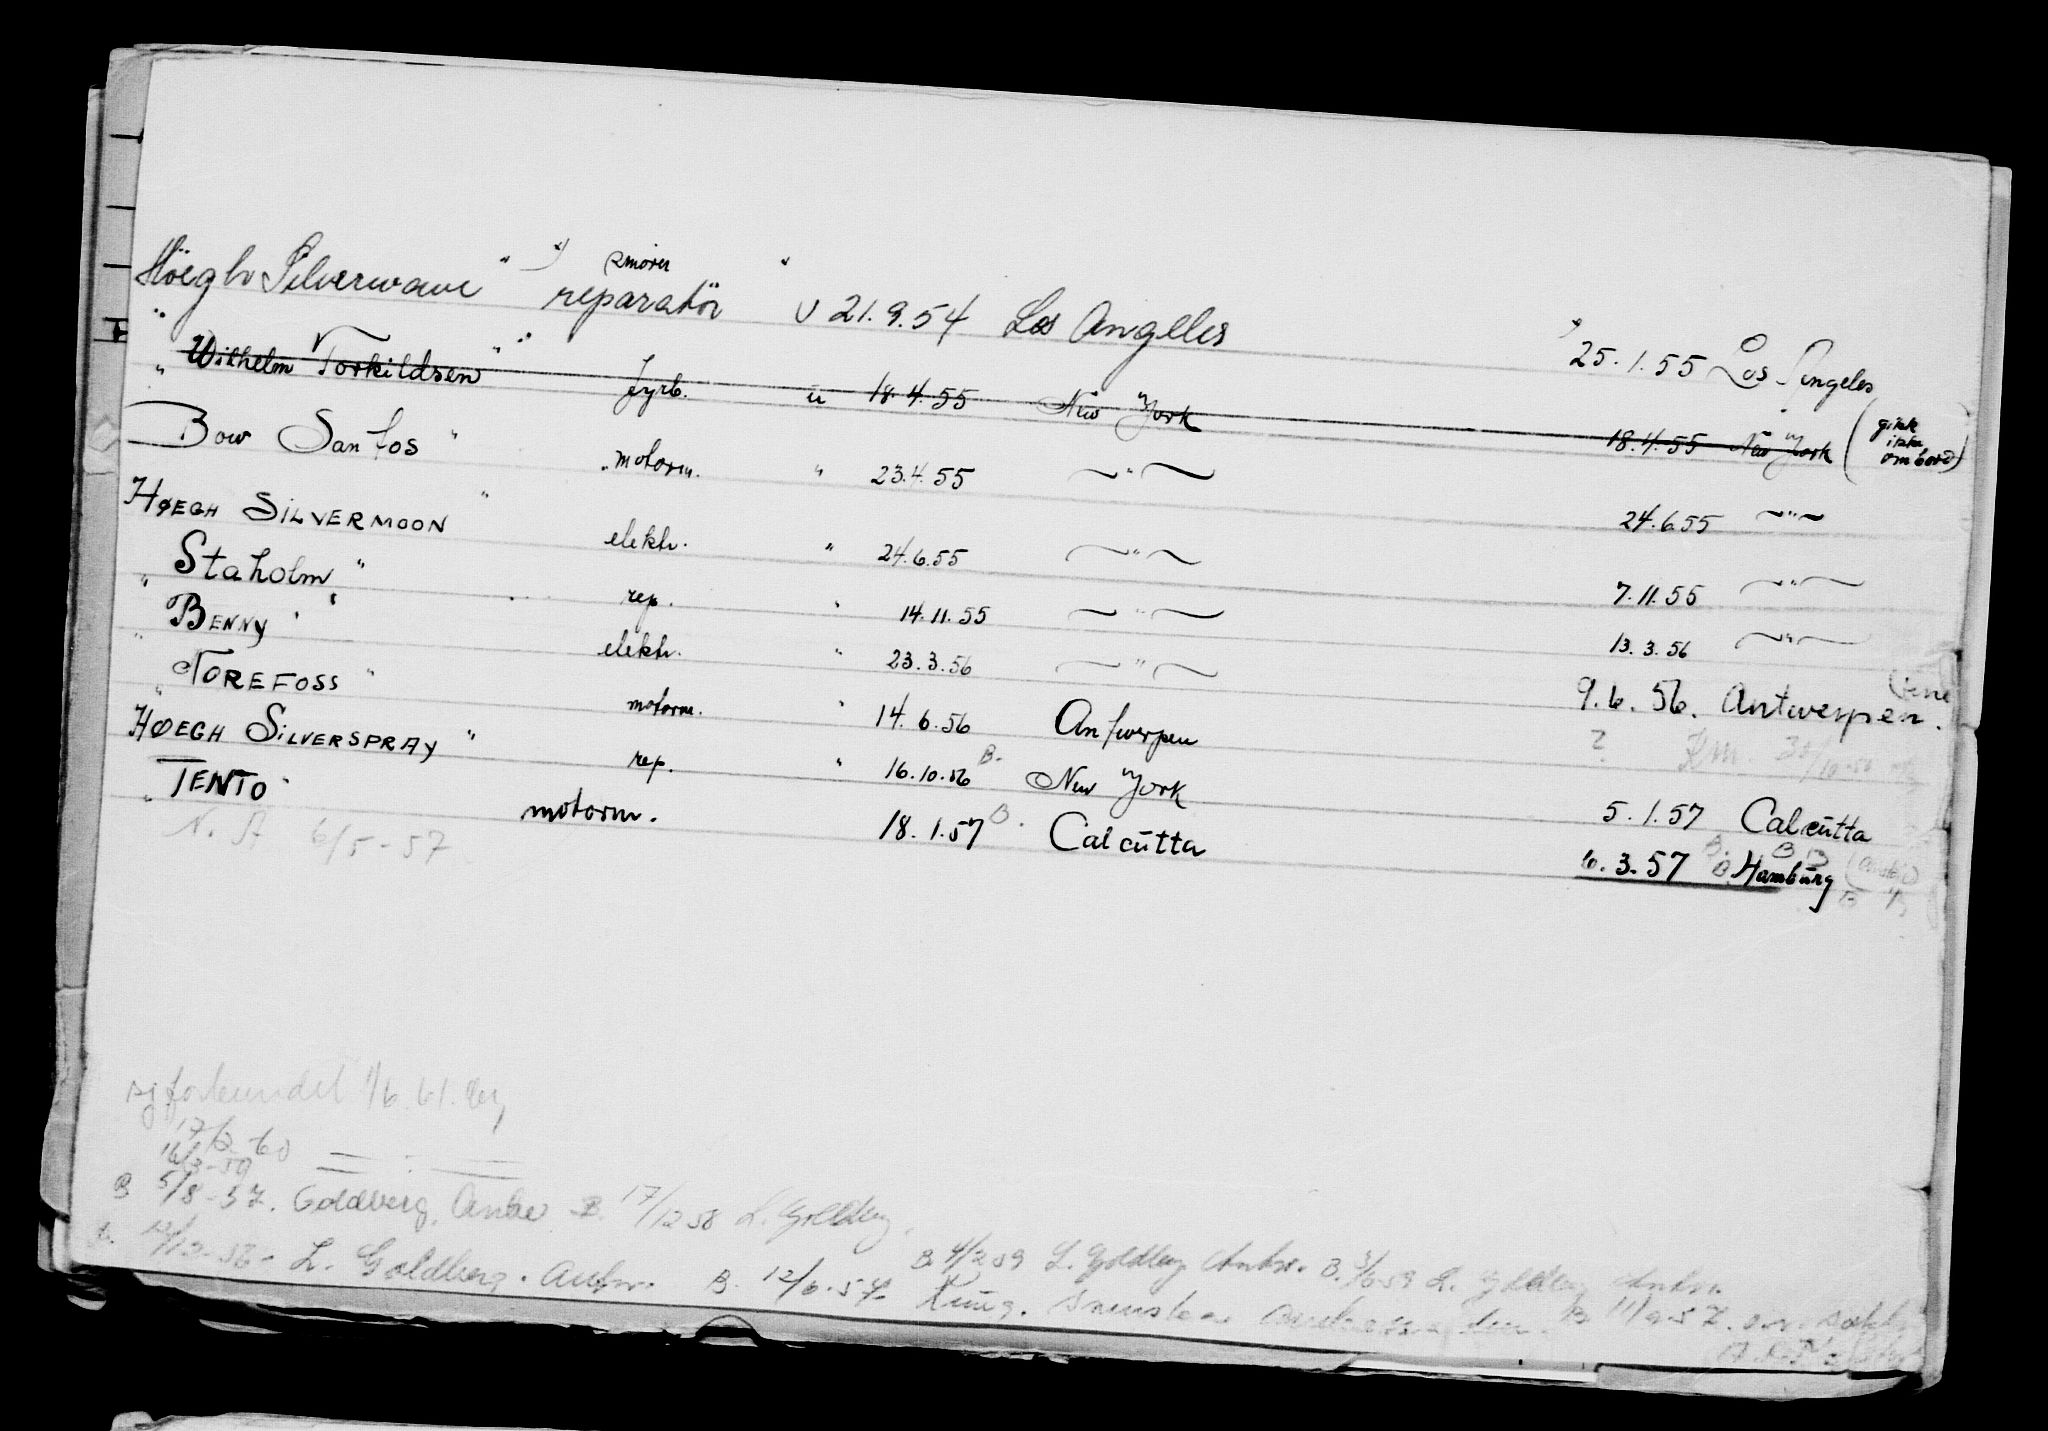 Höegh Silverwave " x) smører reparatör " u 21.9.54 Los Angeles x) 25.1.55 Los Angeles
" Wilhelm Torkildsen " fyrb. u 18.4.55 New York 18.4.55 New York (gikk ikke ombord)
Bow Santos " motorm. " 23.4.55 — " — 24.6.55 — " —
HØEGH SILVERMOON " elektr. " 24.6.55 — " — 7.11.55 — " —
" Staholm " rep. " 14.11.55 — " — 13.3.56 — " —
" BENNY " elektr. " 23.3.56 — " — 9.6.56. Antwerpen.
" NOREFOSS " motorm. " 14.6.56 Antwerpen ?
HØEGH SILVERSPRAY " rep. " 16.10.56 B. New York 5.1.57 Calcutta
" TENTO " motorm. 18.1.57 B. Calcutta 10.3.57 B. Hamburg
N. A 6/5-57
17/2-60
16/3-59 — " —
B 5/8-57. Goldberg, B. 17/12 58 L. Goldberg.
L. Goldberg. Antw. B. 12/6-57 B 4/2 59 L. Goldberg Antw. B. L. Goldberg Antw.
B 11/9-57.